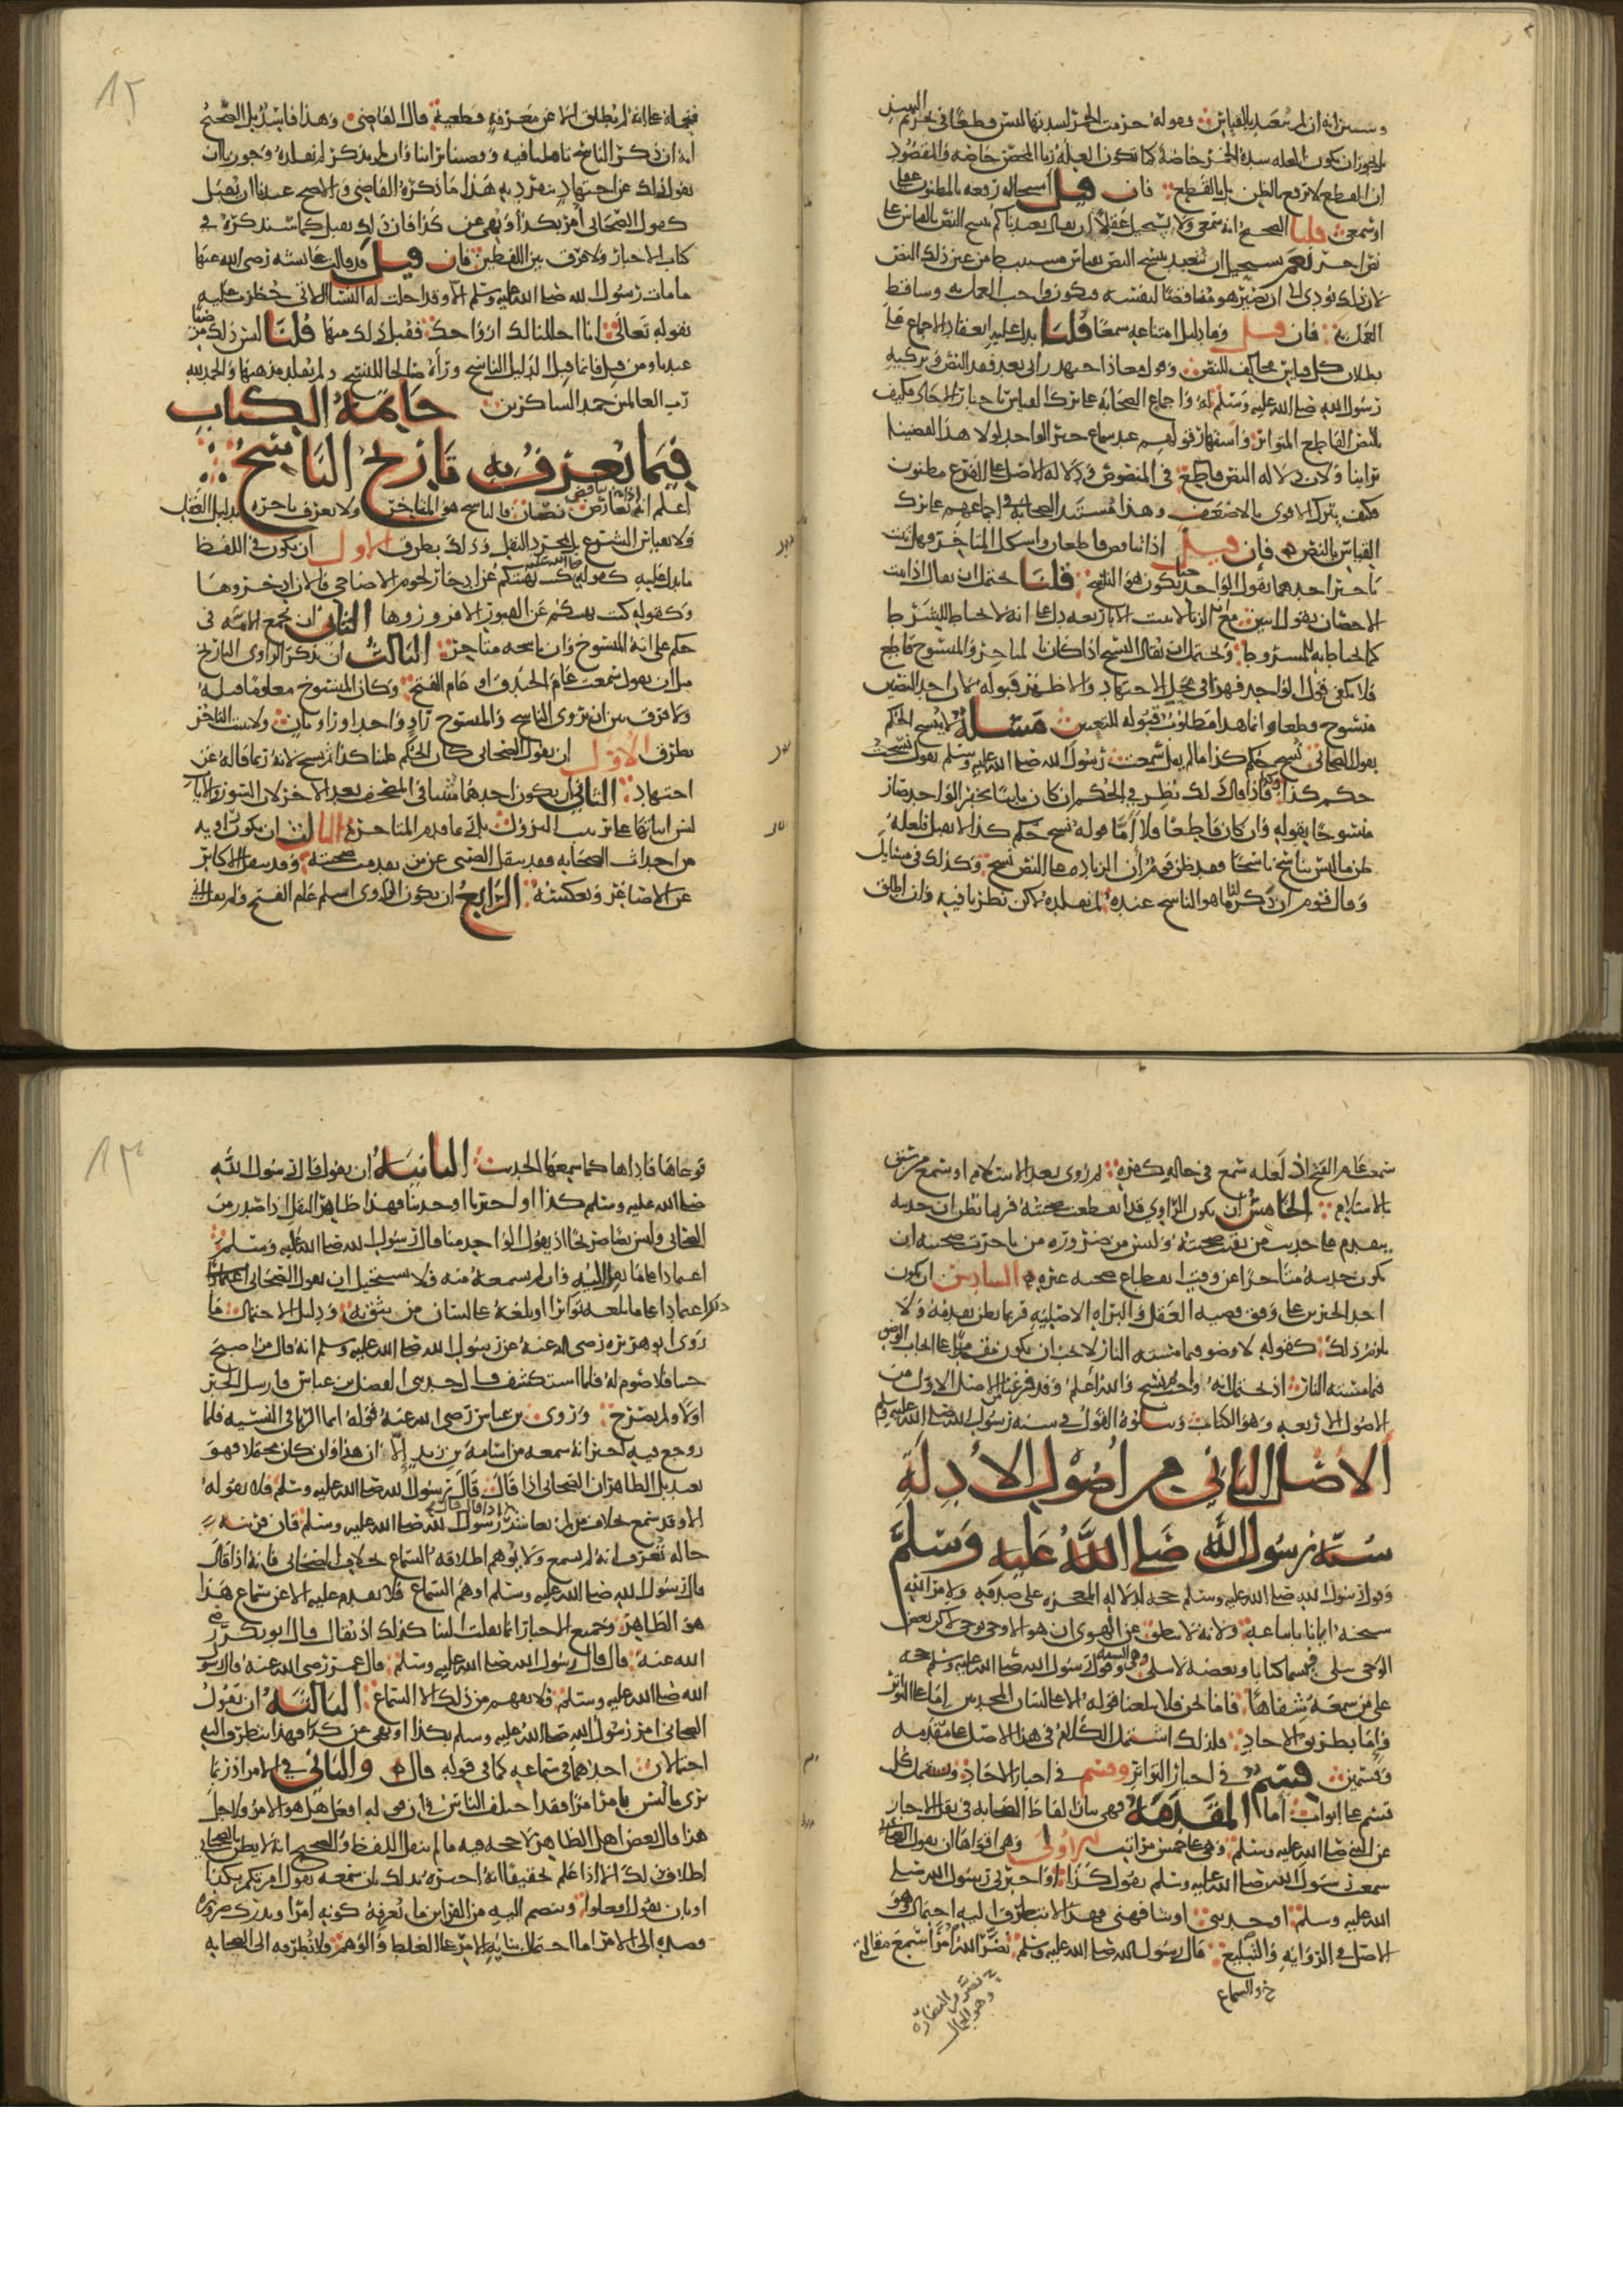 وسنبين انه ان لم نتعبد بالقياس فقوله حرمت الخمر لشدتها ليس قطعا في تحريم النبيذ
بل يجوز ان تكون العله شدة الخمر خاصة كما تكون العلة زنا المحصن خاصة والمقصود
ان القطع لا يرفع بالظن بل بالقطع فان قيل استحالة رفعه بالمظنون عقلي
او سمعي قلنا الصحيح انه سمعي ولا يستحيل عقلا ان يقال تعبدناكم بنسخ النص بالقياس على
نص اخر نعم يستحيل ان نتعبد بنسخ النص بقياس مستنبط من عين ذلك النص
لان ذلك يؤدي الى ان يصير هو مناقضا لنفسه فيكون واجب العمل به وساقط
العمل به فان قيل وما دليل امتناعه سمعا قلنا يدل عليه انعقاد الاجماع على
بطلان كل قياس مخالف للنص وقول معاذ اجتهد رايي بعد فقد النص وتزكيه
رسول الله صلى الله عليه وسلم له واجماع الصحابه على ترك القياس باخبار الاحاد فكيف
بالنص القاطع المتواتر واشتهار قولهم عند سماع خبر الواحد لولا هذا لقضينا
براينا ولان دلاله النص قاطع في المنصوص ودلاله الاصل على الفرع مظنون
فكيف يترك الاقوى بالاضعف وهذا مستند الصحابه في اجماعهم على ترك
القياس بالنص فإن قيل اذا تناقض قاطعان واشكل المتاخر فهل يثبت
تاخر احدهما بقول الواحد حتى يكون هو الناسخ قلنا يحتمل ان يقال اذا ثبت
الاحصان بقول اثنين مع ان الزنا لا يثبت الا باربعه دل على انه لا يحتاط للشرط بما
كما يحتاط به للمشروط ويحتمل ان يقال النسخ اذا كان بالمتاخر والمنسوخ قاطع
فلا يكفي فيه قول الواحد فهذا في محل الاجتهاد والاظهر قبوله لان احد النصين
منسوخ قطعا وانما هذا مطلوب قبوله للتعيين مسلة لا ينسخ الحكم
بقول الصحابي نسخ حكم كذا ما لم يقل سمعت رسول الله صلى الله عليه وسلم يقول نسخت
حكم كذا وكذا فاذا قال ذلك نظر في الحكم ان كان ثابتا بخبر الواحد صار
منسوخا بقوله وان كان قاطعا فلا أما قوله نسخ حكم كذا لا يقبل فلعله
ظن ما ليس بناسخ ناسخا فقد ظن قوم ان الزيادة على النص نسخ وكذلك في مسايل
وقال قوم ان ذكر لنا ما هو الناسخ عنده لم نقلده لكن نظرنا فيه وان اطلق
١٢
فنحمله على انه لم يطلق الا عن معرفة قطعية قال القاضي وهذا فاسد بل الصحيح
انه ان ذكر الناسخ تاملنا فيه وقضينا براينا وان لم يذكر لم نقلده وجوزنا ان
يقول ذلك عن اجتهاد ينفرد به هذا ما ذكره القاضي والاصح عندنا ان يقبل
كقول الصحابي أمر بكذا ونهي عن كذا فان ذلك يقبل كما سنذكره في
كتاب الاخبار ولا فرق بين اللفظين فان قيل قد قالت عائشه رضي الله عنها
ما مات رسول الله صلى الله عليه وسلم الا وقد احلت له النسا اللاتي حظرن عليه
بقوله تعالى انا احللنا لك ازواجك فقبل ذلك منها قلنا ليس ذلك مرضيا
عندنا ومن قبل فانما قبل الدليل الناسخ ورآه صالحا للنسخ ولم يقلد مذهبها والحمد لله
رب العالمين حمد الشاكرين خاتمة الكتاب
فيما يعرف به تاريخ الناسخ
اعلم انه اذا تعارض تناقض نصان فالناسخ هو المتاخر ولا يعرف تاخره بدليل العقل
ولا بقياس الشرع بل بمجرد النقل وذلك بطرق الاول ان يكون في اللفظ
ما يدل عليه كقوله كنت نهيتكم عن ادخار لحوم الاضاحي فالان ادخروها
وكقوله كنت نهيتكم عن القبور الا فزوروها الثاني ان تجمع الامه في
حكم على انه المنسوخ وان ناسخه متاخر الثالث ان يذكر الراوي التاريخ
مثل ان يقول سمعت عام الخندق او عام الفتح وكان المنسوخ معلوما قبله
ولا فرق بين ان يروي الناسخ والمنسوخ راو واحد او راويان ولا يثبت التاخر
بطرق الاول ان يقول الصحابي كان الحكم علينا كذا ثم نسخ لانه ربما قاله عن
اجتهاد الثاني ان يكون احدهما مثبتا في المصحف بعد الاخر لان السور والايات
ليس اثباتها على ترتيب النزول بل ربما قدم المتاخر الثالث ان يكون راويه
من احداث الصحابه فقد ينقل الصبي عن من تقدمت صحبته وقد ينقل الاكابر
عن الاصاغر وبعكسه الرابع ان يكون الراوي اسلم عام الفتح ولم يقل اني
سمعت عام الفتح اذ لعله سمع في حالة كفره ثم روى بعد الاسلام او سمع ممن سبق
بالاسلام الخامس ان يكون الراوي قد انقطعت صحبته فربما يظن ان حديثه
يتقدم على حديث من بقيت صحبته وليس من ضروره من تاخرت صحبته ان
يكون حديثه متاخرا عن وقت انقطاع صحبه غيره السادس ان يكون
احد الخبرين على وفق قضيه العقل والبراه الاصلية فربما يظن تقدمه ولا
يلزم ذلك كقوله لا وضو مما مسته النار لا يجب ان يكون متقدما على ايجاب الوضو
مما مسته النار اذ يحتمل انه اوجب ثم نسخ والله اعلم وقد فرغنا من الاصل الاول من
الاصول الاربعه وهو الكتاب ويتلوه القول في سنه رسول الله صلى الله عليه وسلم
الاصل الثاني من اصول الأدلة
سنة رسول الله صلى الله عليه وسلم
وقول رسول الله صلى الله عليه وسلم حجه لدلاله المعجزه على صدقه ولامر الله
سبحنه ايانا باتباعه ولانه لا ينطق عن الهوى ان هو الا وحي يوحى لكن بعض
الوحي يتلى فيسما كتابا وبعضه لا يتلى وهو السنه وقول رسول الله صلى الله عليه وسلم حجه
على من سمعه شفاها فاما نحن فلا يبلغنا قوله الا على لسان المخبرين اما على التواتر
وإما بطريق الاحاد فلذلك اشتمل الكلام في هذا الاصل على مقدمه
وقسمين قسم في اخبار التواتر وقسم في اخبار الاحاد ويشتمل كل
قسم على ابواب أما المقدمة فهي بيان الفاظ الصحابه في نقل الاخبار
عن النبي صلى الله عليه وسلم وهي على خمس مراتب الاولى وهي اقواها ان يقول الصحابي
سمعت رسول الله صلى الله عليه وسلم يقول كذا او اخبرني رسول الله صلى
الله عليه وسلم او حدثني او شافهني فهذا لا يتطرق اليه احتمال وهو
الاصل في الرواية والتبليغ قال رسول الله صلى الله عليه وسلم نضر الله امرأ سمع مقالتي
خ والسماع
نضر من النضاره
وهو الجمال
١٣
فوعاها فاداها كما سمعها الحديث الثانية ان يقول قال رسول الله
صلى الله عليه وسلم كذا او اخبر او حدثنا فهذا ظاهر النقل اذا صدر من
الصحابي وليس نصا صريحا اذ يقول الواحد منا قال رسول الله صلى الله عليه وسلم
اعتمادا على ما نقل اليه وان لم يسمعه منه فلا يستحيل ان يقول الصحابي
ذلك اعتمادا على ما بلغه تواترا او بلغه على لسان من يثق به ودليل الاحتمال ما
روى ابو هريره رضي الله عنه عن رسول الله صلى الله عليه وسلم انه قال من اصبح
جنبا فلا صوم له فلما استكشف قال حدثني الفضل بن عباس فارسل الخبر
اولا ولم يصرح وروى بن عباس رضي الله عنه قوله انما الربا في النسيه فلما
روجع فيه اخبر انه سمعه من اسامة بن زيد إلا ان هذا وان كان محتملا فهو
بعيد بل الظاهر ان الصحابي اذا قال قال رسول الله صلى الله عليه وسلم فلا يقوله
الا وقد سمع بخلاف من لم يعاصر رسول الله صلى الله عليه وسلم فان قرينه
حاله تعرف انه لم يسمع ولا يوهم اطلاقه السماع بخلاف الصحابي فانه اذا قال
قال رسول الله صلى الله عليه وسلم اوهم السماع فلا يقدم عليه الا عن سماع هذا
هو الظاهر وجميع الاخبار انما نقلت الينا كذلك اذ يقال قال ابو بكر رضي
الله عنه قال رسول الله صلى الله عليه وسلم قال عمر رضي الله عنه قال رسول
الله صلى الله عليه وسلم فلا يفهم من ذلك الا السماع الثالثة ان يقول
الصحابي امر رسول الله صلى الله عليه وسلم بكذا او نهى عن كذا فهذا يتطرق اليه
احتمالان احدهما في سماعه كما في قوله قال والثاني في الامر اذ ربما
يرى ما ليس بامر امرا فقد اختلف الناس في ان قوله افعل هل هو للامر ولاجل
هذا قال بعض اهل الظاهر لا حجه فيه ما لم ينقل اللفظ والصحيح انه لا يظن بالصحابي
اطلاق ذلك الا اذا علم تحقيقا انه امر بذلك بان سمعه يقول امرتكم بكذا
او بان يقول افعلوا وينضم اليه من القراين ما يعرفه كونه امرا ويدرك ضرورة
قصده الى الامر اما احتمال بنايه الامر على الغلط والوهم فلا نطرقه الى الصحابه